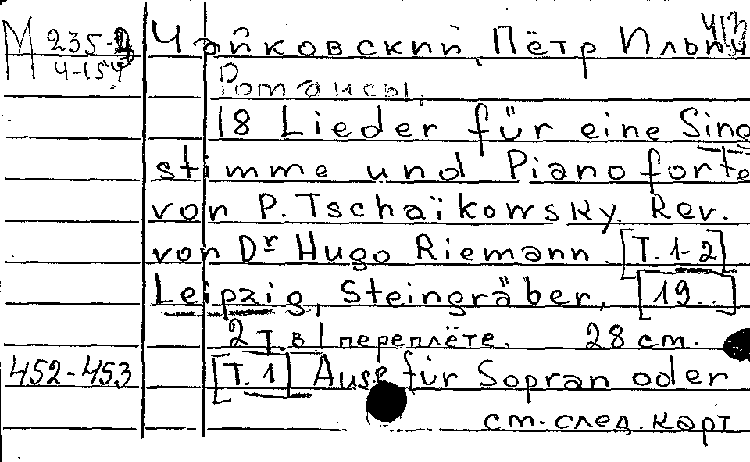 М 235-2 Чайковский, Пётр Ильич
Ч-154
Романсы.
18 Lieder für eine Sing
stimme und Pianoforte
von P. Tschaïkowsky. Rev.
von Dr Hugo Riemann [Т. 1-2]
Leipzig, Steingräber, [19..]
2 т. в 1 переплёте. 28 cm.
452-453 [Т. 1] Ausg für Sopran oder
см. след. карт